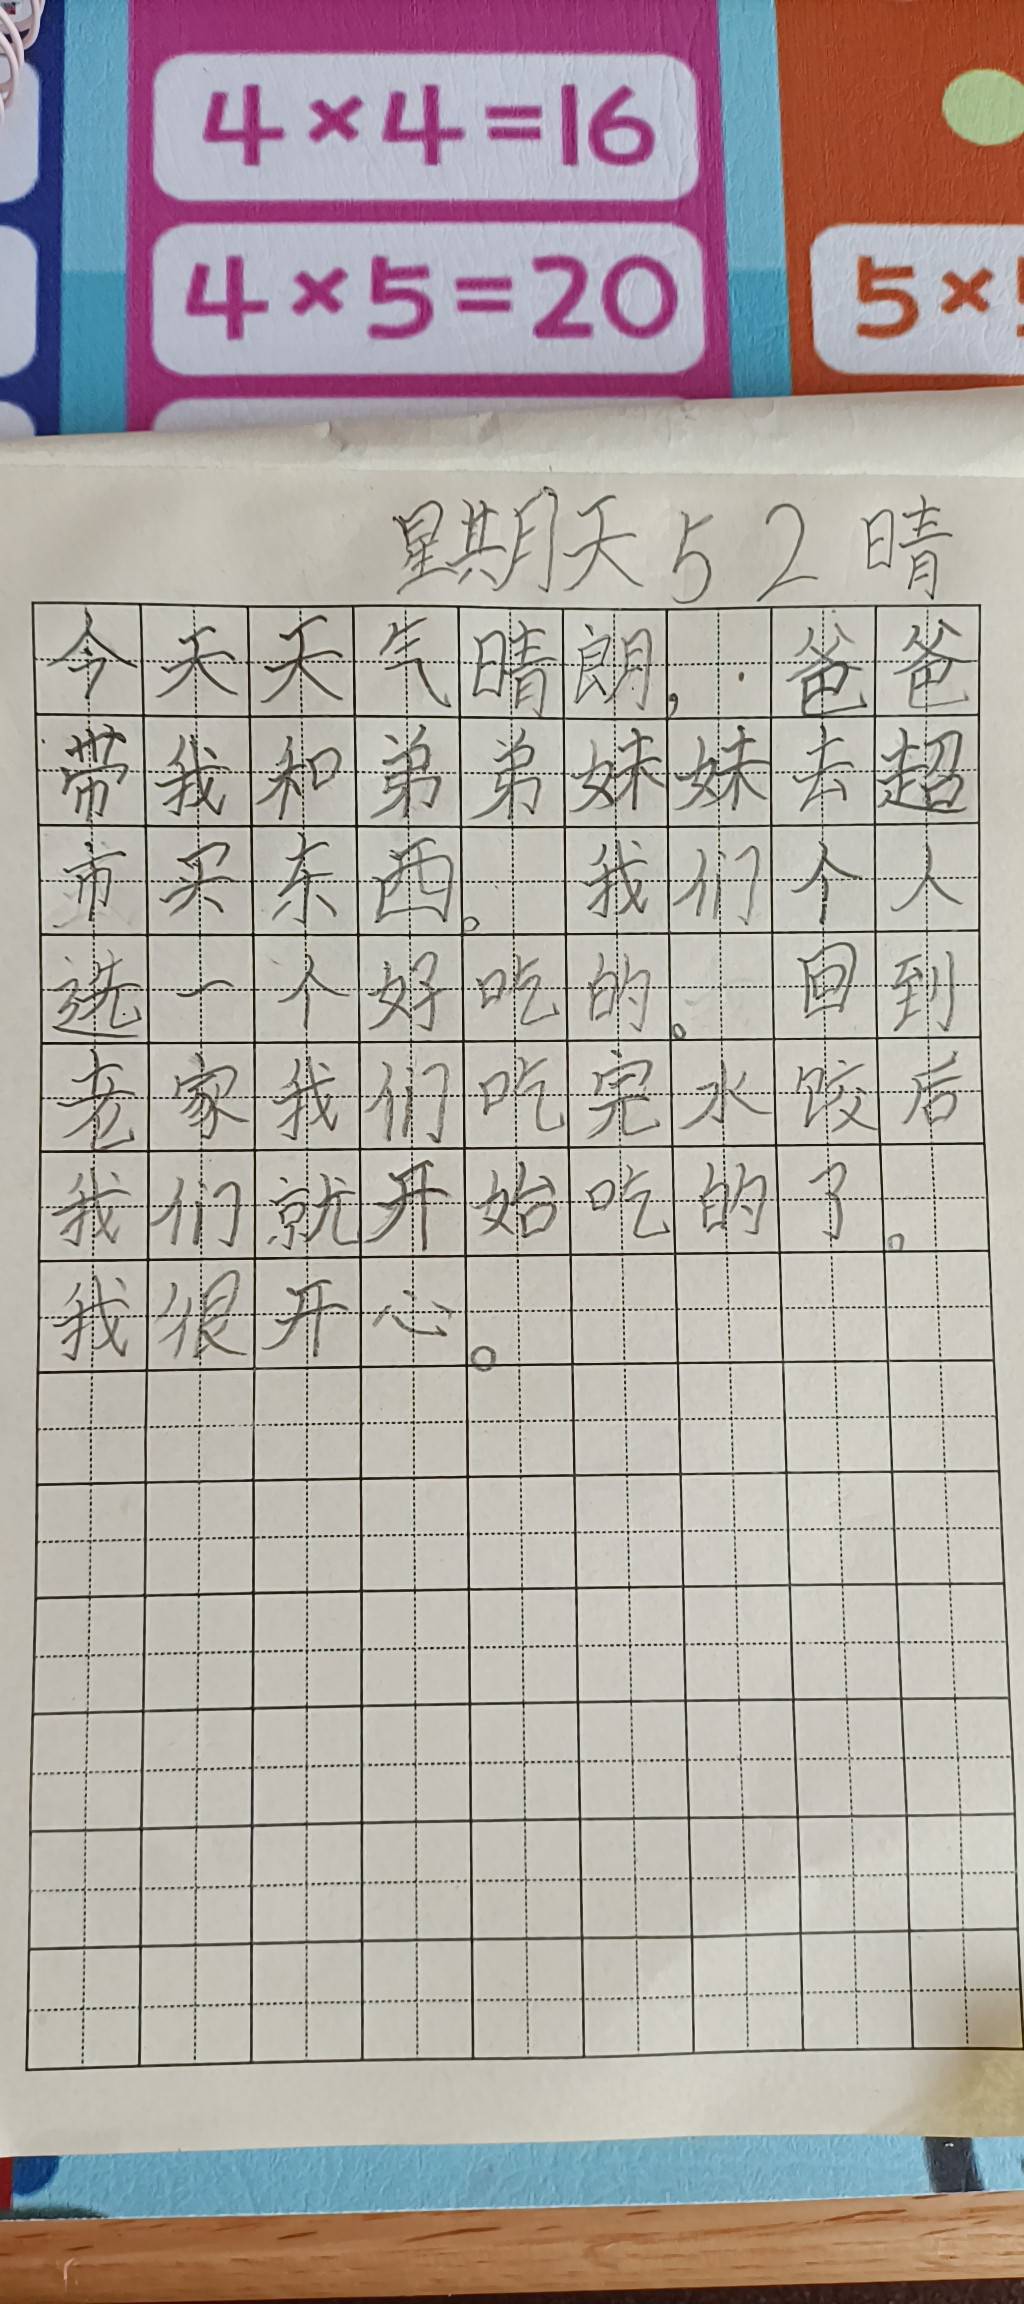 4×4=16
4×5=20
5×5
星期天 5 2 晴
今天天气晴朗，·爸爸
带我和弟弟妹妹去超
市买东西。我们个人
选一个好吃的。回到
老家我们吃完水饺后
我们就开始吃的了。
我很开心。